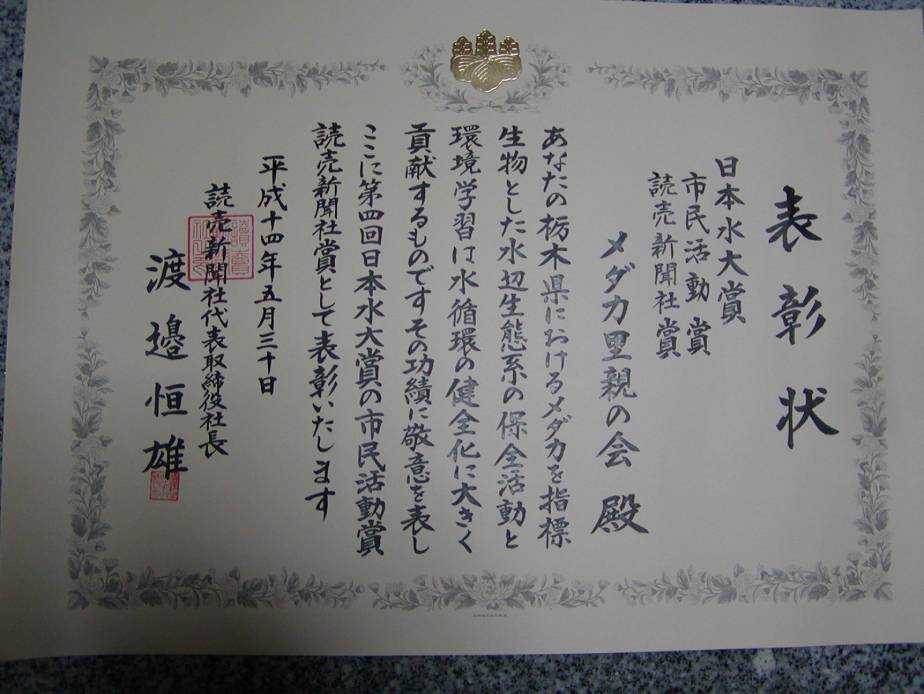 表彰状
日本水大賞
市民活動賞
読売新聞社賞
メダカ里親の会 殿
あなたの栃木県におけるメダカを指標
生物とした水辺生態系の保全活動と
環境学習は水循環の健全化に大きく
貢献するものですその功績に敬意を表し
ここに第四回日本水大賞の市民活動賞
読売新聞社賞として表彰いたします
平成十四年五月三十日
読売新聞社代表取締役社長
渡邉恒雄